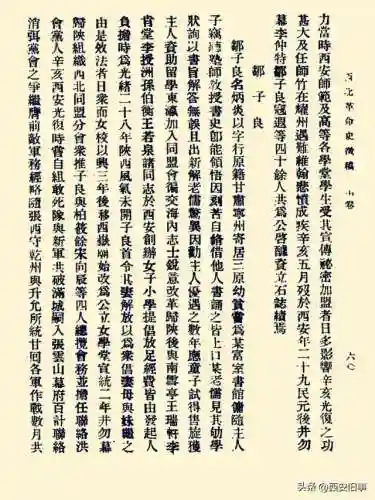 西北革命史徵稿　中卷　六〇
力當時西安師範及高等各學堂學生受其宣傳秘密加盟者日多影響辛亥光復之功
甚大及任師竹在耀州遇難維翰悲憤成疾辛亥五月歿於西安年二十九民元後井勿
幕李仲特鄒子良寇遐等四十餘人共為公啓醵資立石誌績焉
鄒子良
鄒子良名炳炎以字行原籍甘肅寧州寄居三原幼貧嘗為某富家書館傭隨主人
子竊聽塾師教授書史即能領悟因刻苦自勵借他人書誦之皆上口某老儒見其劬學
狀詢以書旨解答無誤且出新解老儒驚異因勸主人優遇之數年應童子試得售旋獲
主人資助留學東瀛加入同盟會徧交海內志士銳意改革歸陝後與南雪亭王瑞軒李
胥堂李授洲孫伯衡王若泉諸同志於西安創辦女子小學提倡放足經費皆由發起人
負擔時為光緒二十八年陝西風氣未開子良首令其妻解放以為眾倡妻母與妹繼之
由是效法者日衆而女校以興三年後移西嶽廟始改為公立女學堂宣統二年井勿幕
歸陝組織西北同盟分會衆推子良與柏筱餘宋向宸等四人總攬會務並擔任聯絡洪
會黨人辛亥西安光復時嘗自組敢死隊與新軍共破滿城嗣入張雲山幕府百計聯絡
消弭黨會之爭繼膺前敵軍務經略隨張西守乾州與升允所統甘回各軍作戰數月共
头条 @西安旧事